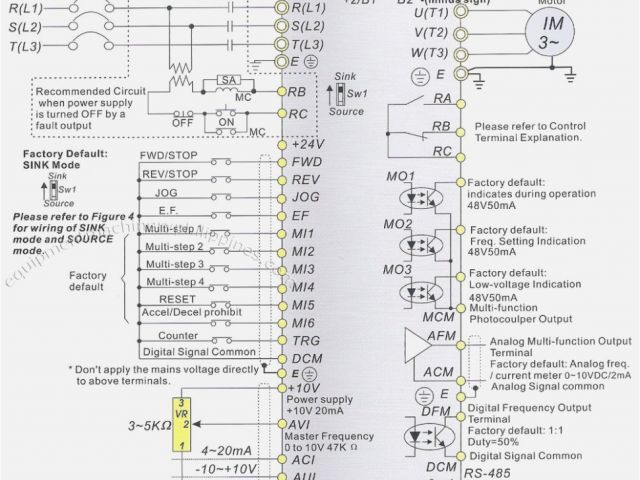 R(L1)
S(L2)
T(L3)
R(L1)
S(L2)
T(L3)
E
+2/B1
B2
(minus sign)
U(T1)
V(T2)
W(T3)
E
Motor
IM
3~
Recommended Circuit
when power supply
is turned OFF by a
fault output
SA
MC
OFF
ON
MC
RB
RC
Sink
Sw1
Source
RA
RB
RC
Please refer to Control
Terminal Explanation.
Factory Default:
SINK Mode
Sink
Sw1
Source
Please refer to Figure 4
for wiring of SINK
mode and SOURCE
mode.
Factory
default
FWD/STOP
REV/STOP
JOG
E.F.
Multi-step 1
Multi-step 2
Multi-step 3
Multi-step 4
RESET
Accel/Decel prohibit
Counter
Digital Signal Common
+24V
FWD
REV
JOG
EF
MI1
MI2
MI3
MI4
MI5
MI6
TRG
DCM
E
* Don't apply the mains voltage directly
to above terminals.
MO1
Factory default:
indicates during operation
48V50mA
MO2
Factory default:
Freq. Setting Indication
48V50mA
MO3
Factory default:
Low-voltage Indication
48V50mA
MCM
Multi-function
Photocoulper Output
AFM
ACM
E
Analog Multi-function Output
Terminal
Factory default: Analog freq.
/ current meter 0~10VDC/2mA
Analog Signal common
DFM
DCM
Digital Frequency Output
Terminal
Factory default: 1:1
Duty=50%
Digital Signal Common
RS-485
3~5KΩ
3
VR
2
1
+10V
Power supply
+10V 20mA
AVI
Master Frequency
0 to 10V 47K Ω
4~20mA
ACI
-10~+10V
AUI